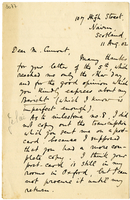 107 High Street,
Nairn,
Scotland
11 Aug. 02.
Dear Mr. Cumont,
Many thanks
for your letter of the 5th, which
reached me only the other day,
and for the good opinion which
you kindly express about my
(which I know is
imperfect enough).
As to milestone no. 8, I did
not take a copy of the
which you sent me on a post
card, because I supposed
that you had a more com-
plete copy. I think your
post-card is still in my
rooms in Oxford, but I can
not procure it until my
return.